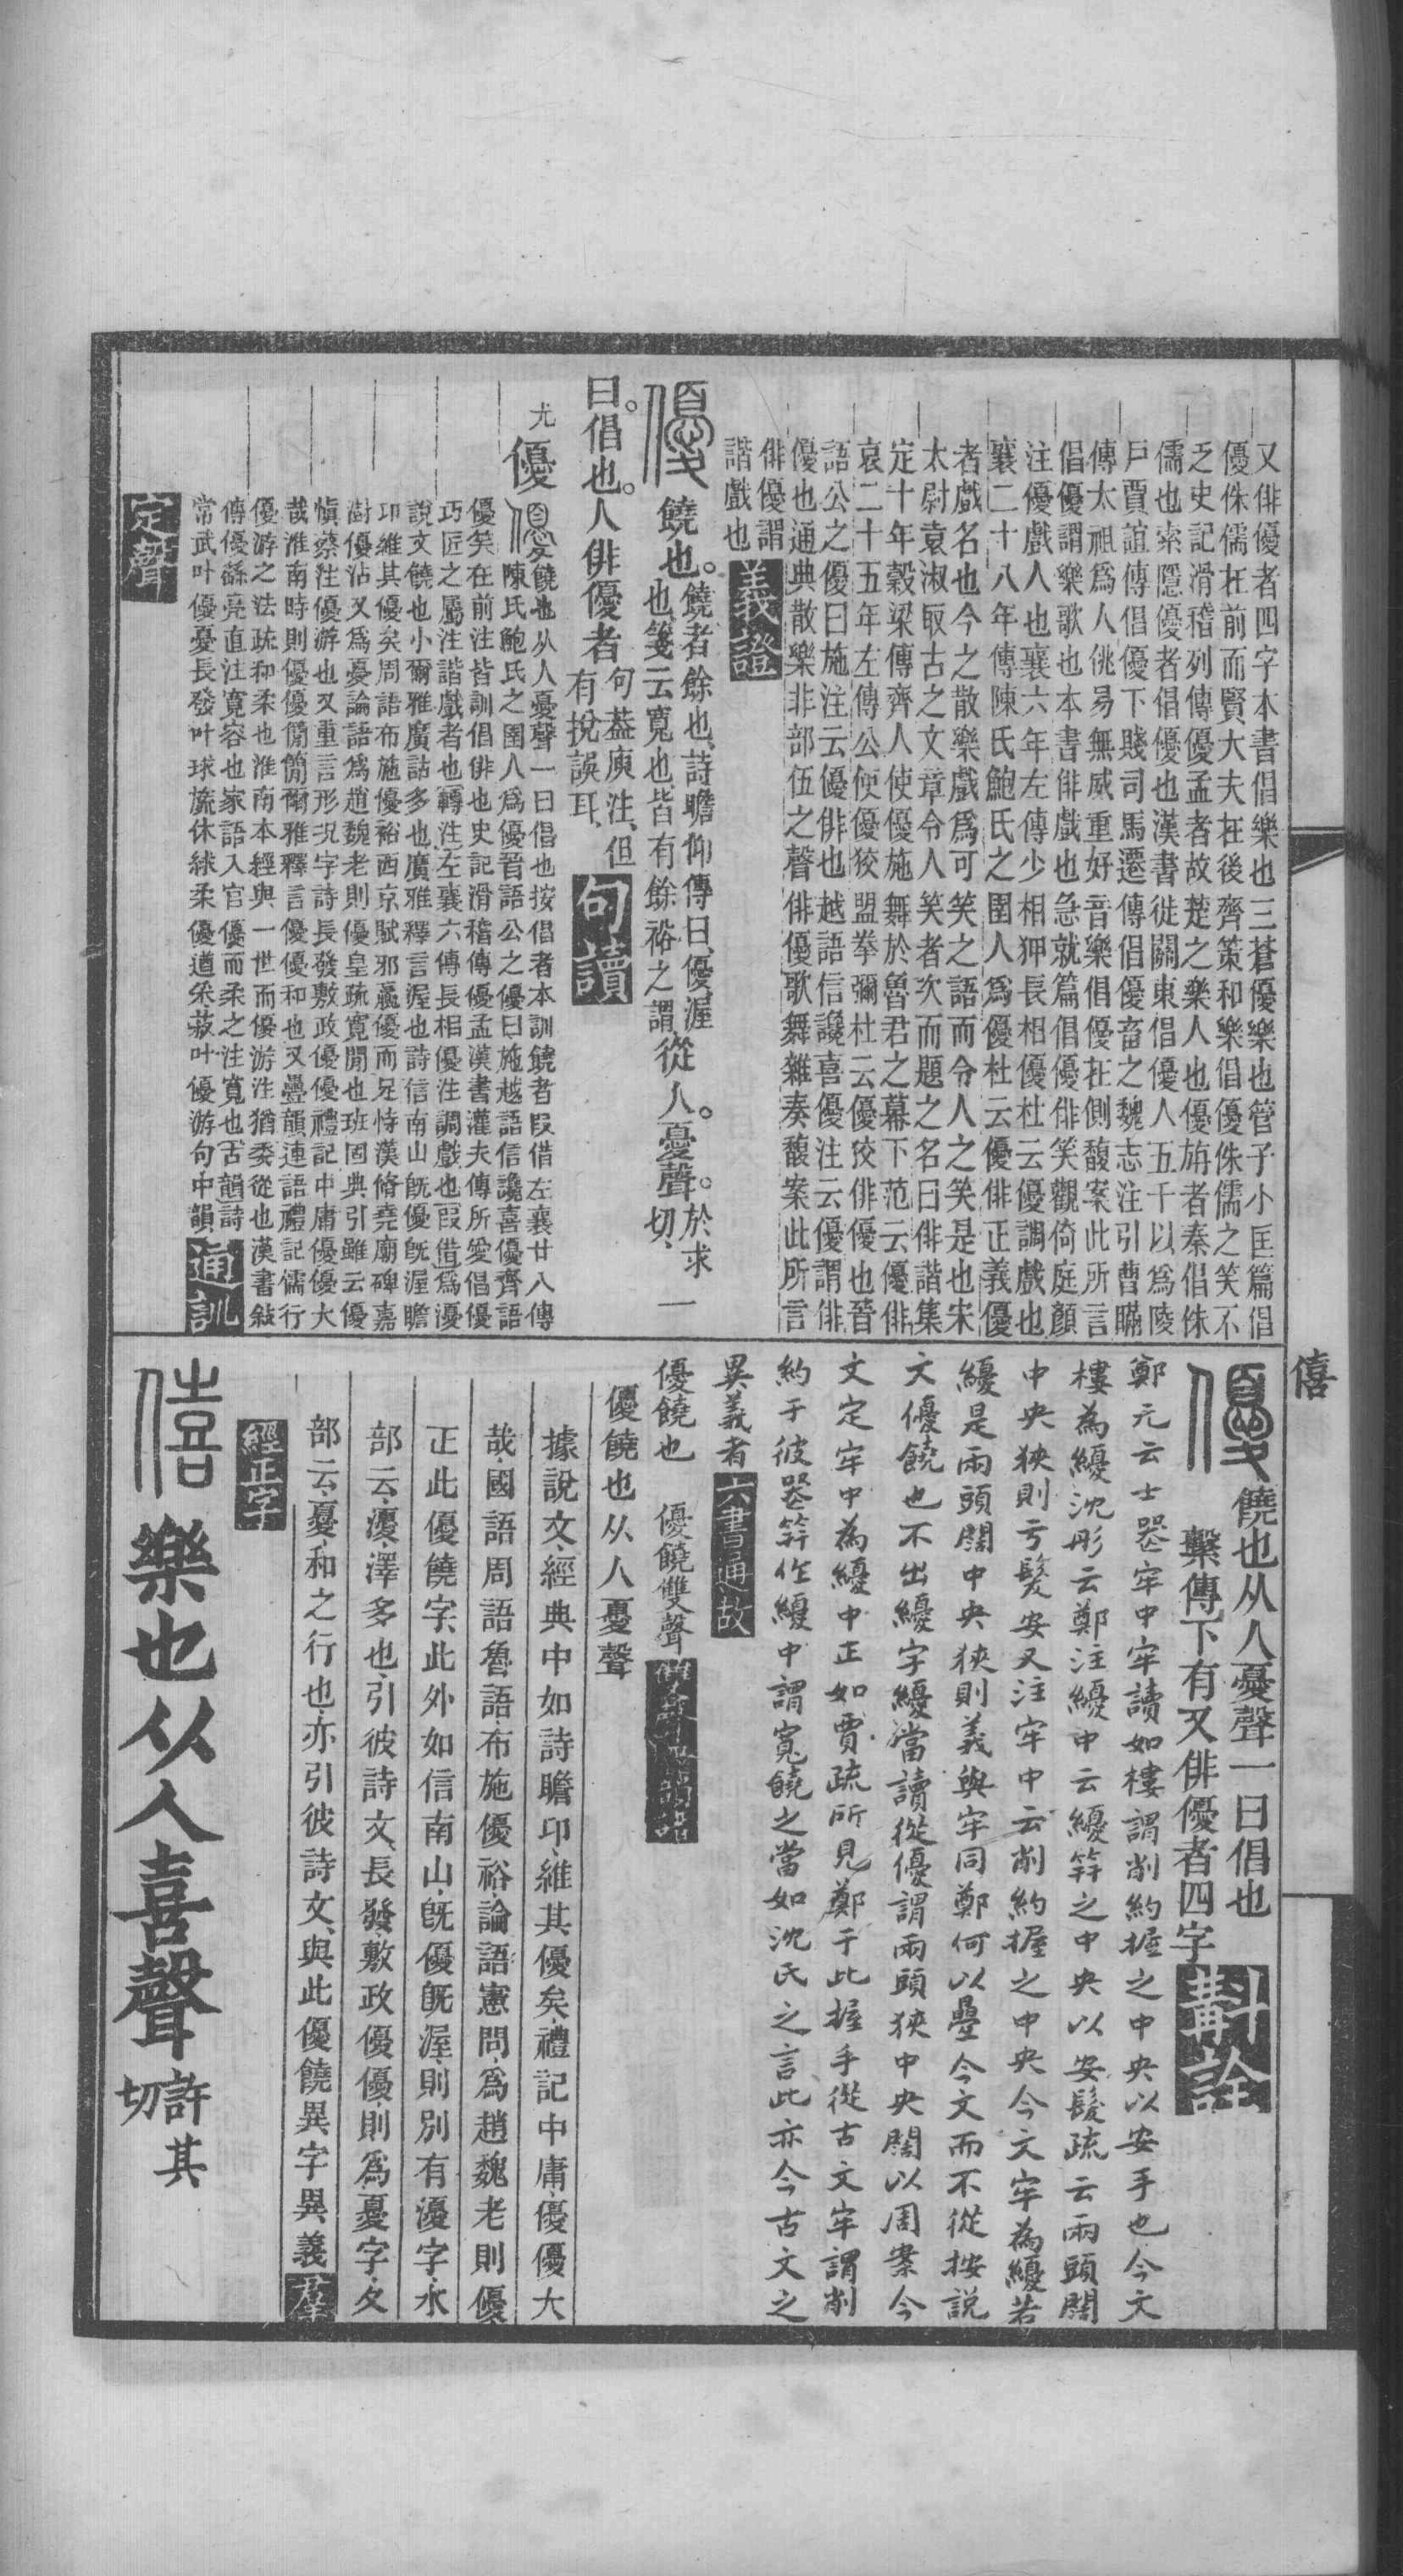 又俳優者四字本書倡樂也三蒼優樂也管子小匡篇倡
優侏儒在前而賢大夫在後齊策和樂倡優侏儒之笑不
乏史記滑稽列傳優孟者故楚之樂人也優旃者秦倡侏
儒也索隱優者倡優也漢書徙關東倡優人五千以為陵
戶賈誼傳倡優下賤司馬遷傳倡優畜之魏志注引曹瞞
傳太祖為人佻易無威重好音樂倡優在側馥案此所言
倡優謂樂歌也本書俳戲也急就篇倡優俳笑觀倚庭顏
注優戲人也襄六年左傳少相狎長相優杜云優調戲也
襄二十八年傳陳氏鮑氏之圉人爲優杜云優俳正義優
者戲名也今之散樂戲爲可笑之語而令人之笑是也宋
太尉袁淑取古之文章令人笑者次而題之名曰俳諧集
定十年穀梁傳齊人使優施舞於魯君之幕下范云優俳
哀二十五年左傳公使優狡盟拳彌杜云優狡俳優也晉
語公之優曰施注云優俳也越語信讒喜優注云優謂俳
優也通典散樂非部伍之聲俳優歌舞雜奏馥案此所言
俳優謂
諧戲也
義證
饒也。饒者餘也、詩瞻仰傳曰、優、渥
也、箋云寬也、皆有餘裕之謂從人。憂聲。於求
切、一
曰。倡也。人俳優者句葢庾注、但
有挩誤耳、
句讀
尤
優
饒也从人憂聲一曰倡也按倡者本訓饒者叚借左襄廿八傳
陳氏鮑氏之圉人爲優晉語公之優曰施越語信讒喜優齊語
優笑在前注皆訓倡俳也史記滑稽傳優孟漢書灌夫傳所愛倡優
巧匠之屬注諧戲者也轉注左襄六傳長相優注調戲也叚借爲瀀
說文饒也小爾雅廣詁多也廣雅釋言渥也詩信南山旣優旣渥瞻
卬維其優矣周語布施優裕西京賦邪贏優而足恃漢脩堯廟碑嘉
澍優沾又爲憂論語爲趙魏老則優皇疏寬閒也班固典引雖云優
愼蔡注優游也又重言形況字詩長發敷政優優禮記中庸優優大
哉淮南時則優優簡簡爾雅釋言優優和也又疊韻連語禮記儒行
優游之法疏和柔也淮南本經與一世而優游注猶委從也漢書敍
傳優繇亮直注寬容也家語入官優而柔之注寬也古韻詩
常武叶優憂長發叶球旒休絿柔優遒采菽叶優游句中韻
通訓
定聲
饒也从人憂聲一曰倡也
繫傳下有又俳優者四字
斠詮
鄭元云士喪牢中牢讀如樓謂削約握之中央以安手也今文
樓為纋沈彤云鄭注纋中云纋笄之中央以安髮疏云兩頭闊
中央狹則于髮安又注牢中云削約握之中央今文牢為纋若
纋是兩頭闊中央狹則義與牢同鄭何以疊今文而不從按説
文優饒也不出纋字纋當讀從優謂兩頭狹中央闊以周案今
文定牢中為纋中正如賈疏所見鄭于此握手從古文牢謂削
約于彼喪笄作纋中謂寬饒之當如沈氏之言此亦今古文之
異義者
六書通故
優饒也　優饒雙聲
優饒也从人憂聲
據說文、經典中如詩瞻卬、維其優矣、禮記中庸、優優大
哉、國語周語魯語、布施優裕、論語憲問、爲趙魏老則優
正此優饒字、此外如信南山、旣優旣渥、則別有瀀字、水
部云、瀀、澤多也、引彼詩文、長發、敷政優優、則爲憂字、夊
部云、憂、和之行也、亦引彼詩文、與此優饒異字異義
羣
經正字
僖
樂也从人喜聲許其
切